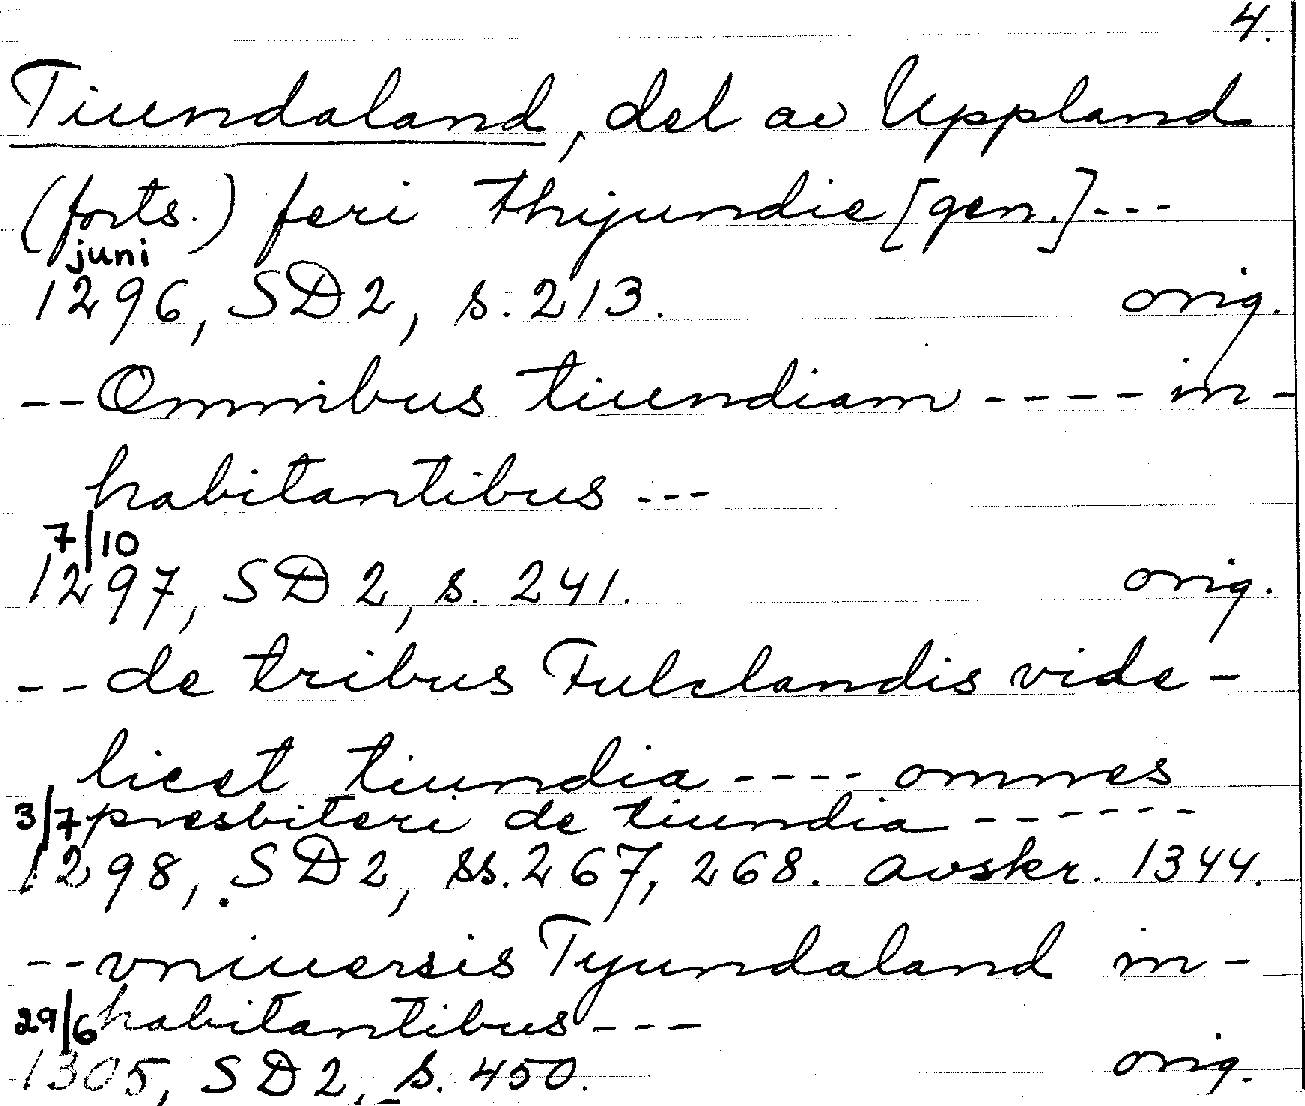 4.
Tiundaland, del av Uppland
(forts.) feri thijundie [gen.]---
juni
1296, SD2, s. 213. orig.
--Omnibus tiundiam ---- in-
habitantibus ---
7/10
1297, SD 2, s. 241. orig.
--de tribus Fulclandis vide-
licet tiundia ---- omnes
3/7 presbiteri de tiundia ------
1298, SD2, ss. 267, 268. avskr. 1344.
--vniuersis Tyundaland in-
29/6 habitantibus ---
1305, SD2, s. 450. orig.